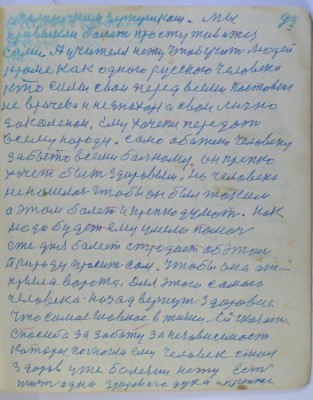 Мы 93
привыкли болет простуживатц
сами. А учителя нету чтобы учот людей
кроме как одного русского человека
кто
не врачеван не знахор а свои лично
закаленой. Ему хочетц передат
всему народу. Само обежено человеку
забыто всеми больному, он крепко
хочет быт здоровым. но человека
не нашлос чтобы он был таким
о этом болет и крепко думат. как
надо будет ему умело помоч
сие дня болет страдает об этом
природу просит сам. чтобы она от
крыла ворота. Для этого самого
человека назад вернут здоровие
что самое главное в жизни. Ей сказат
спасиба за заботу за независимост
которая помогла ему человек стал
здоров уже болезни нету Ест
одна здорового духа